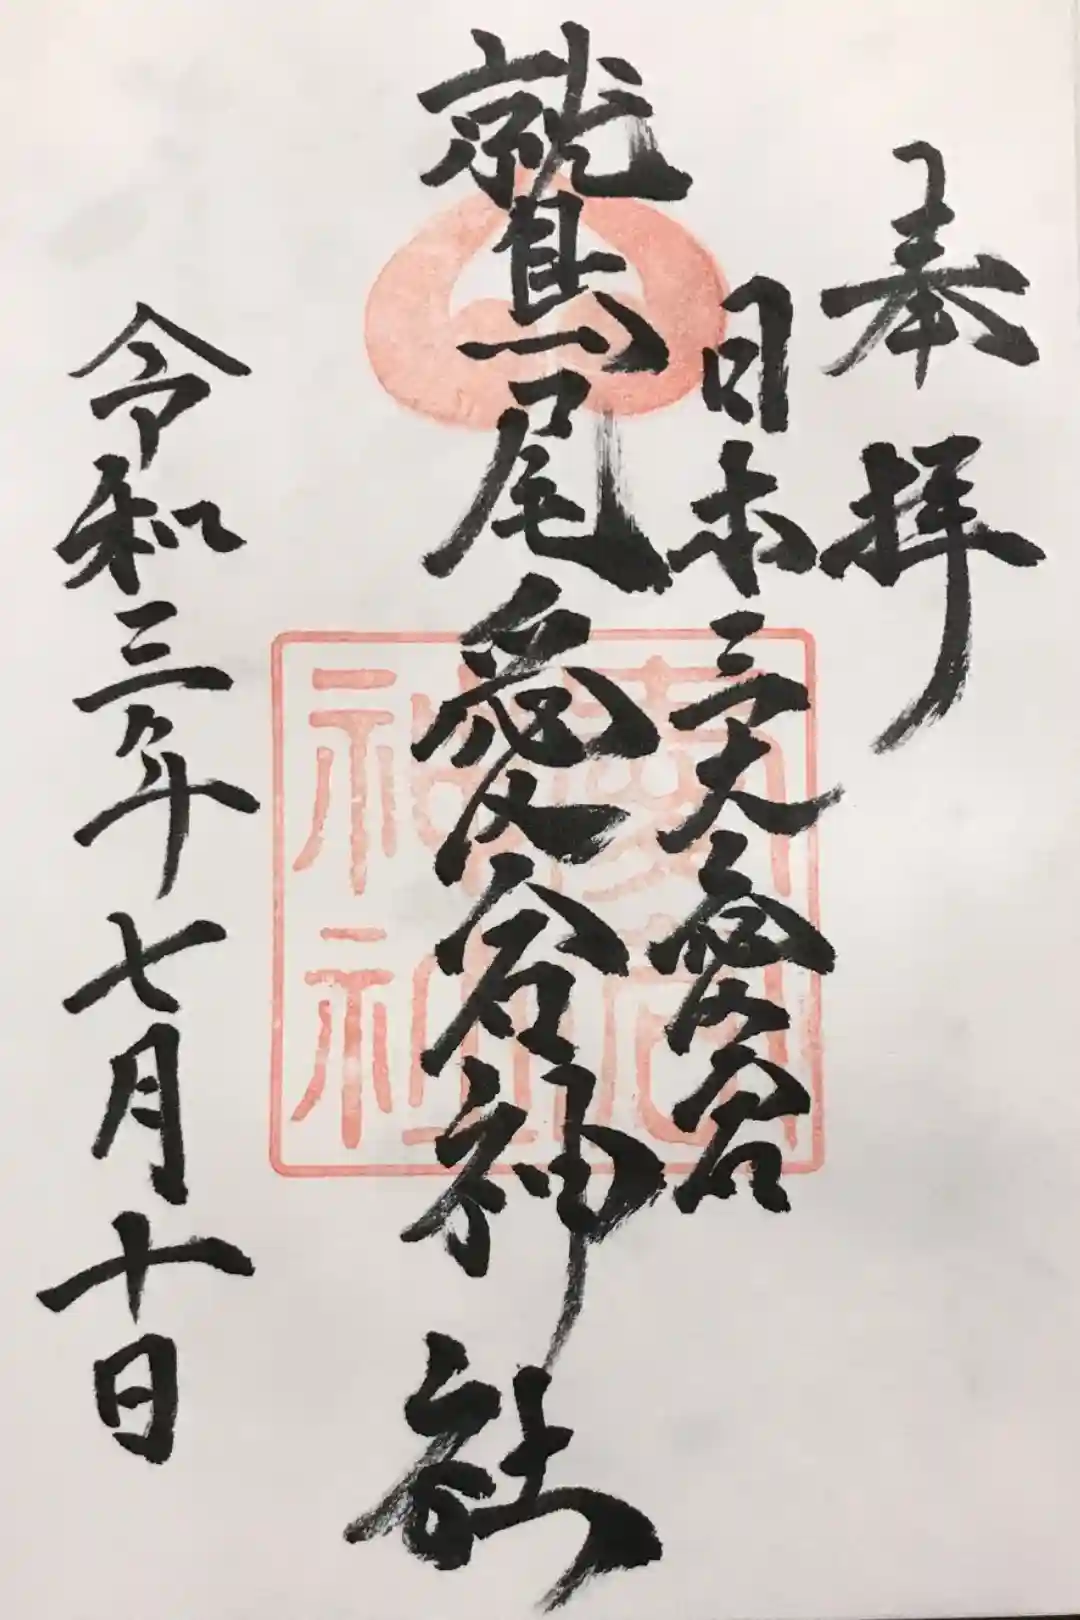 奉拝
日本三大愛宕
鷲尾愛宕神社
令和三年七月十日
愛宕
神社